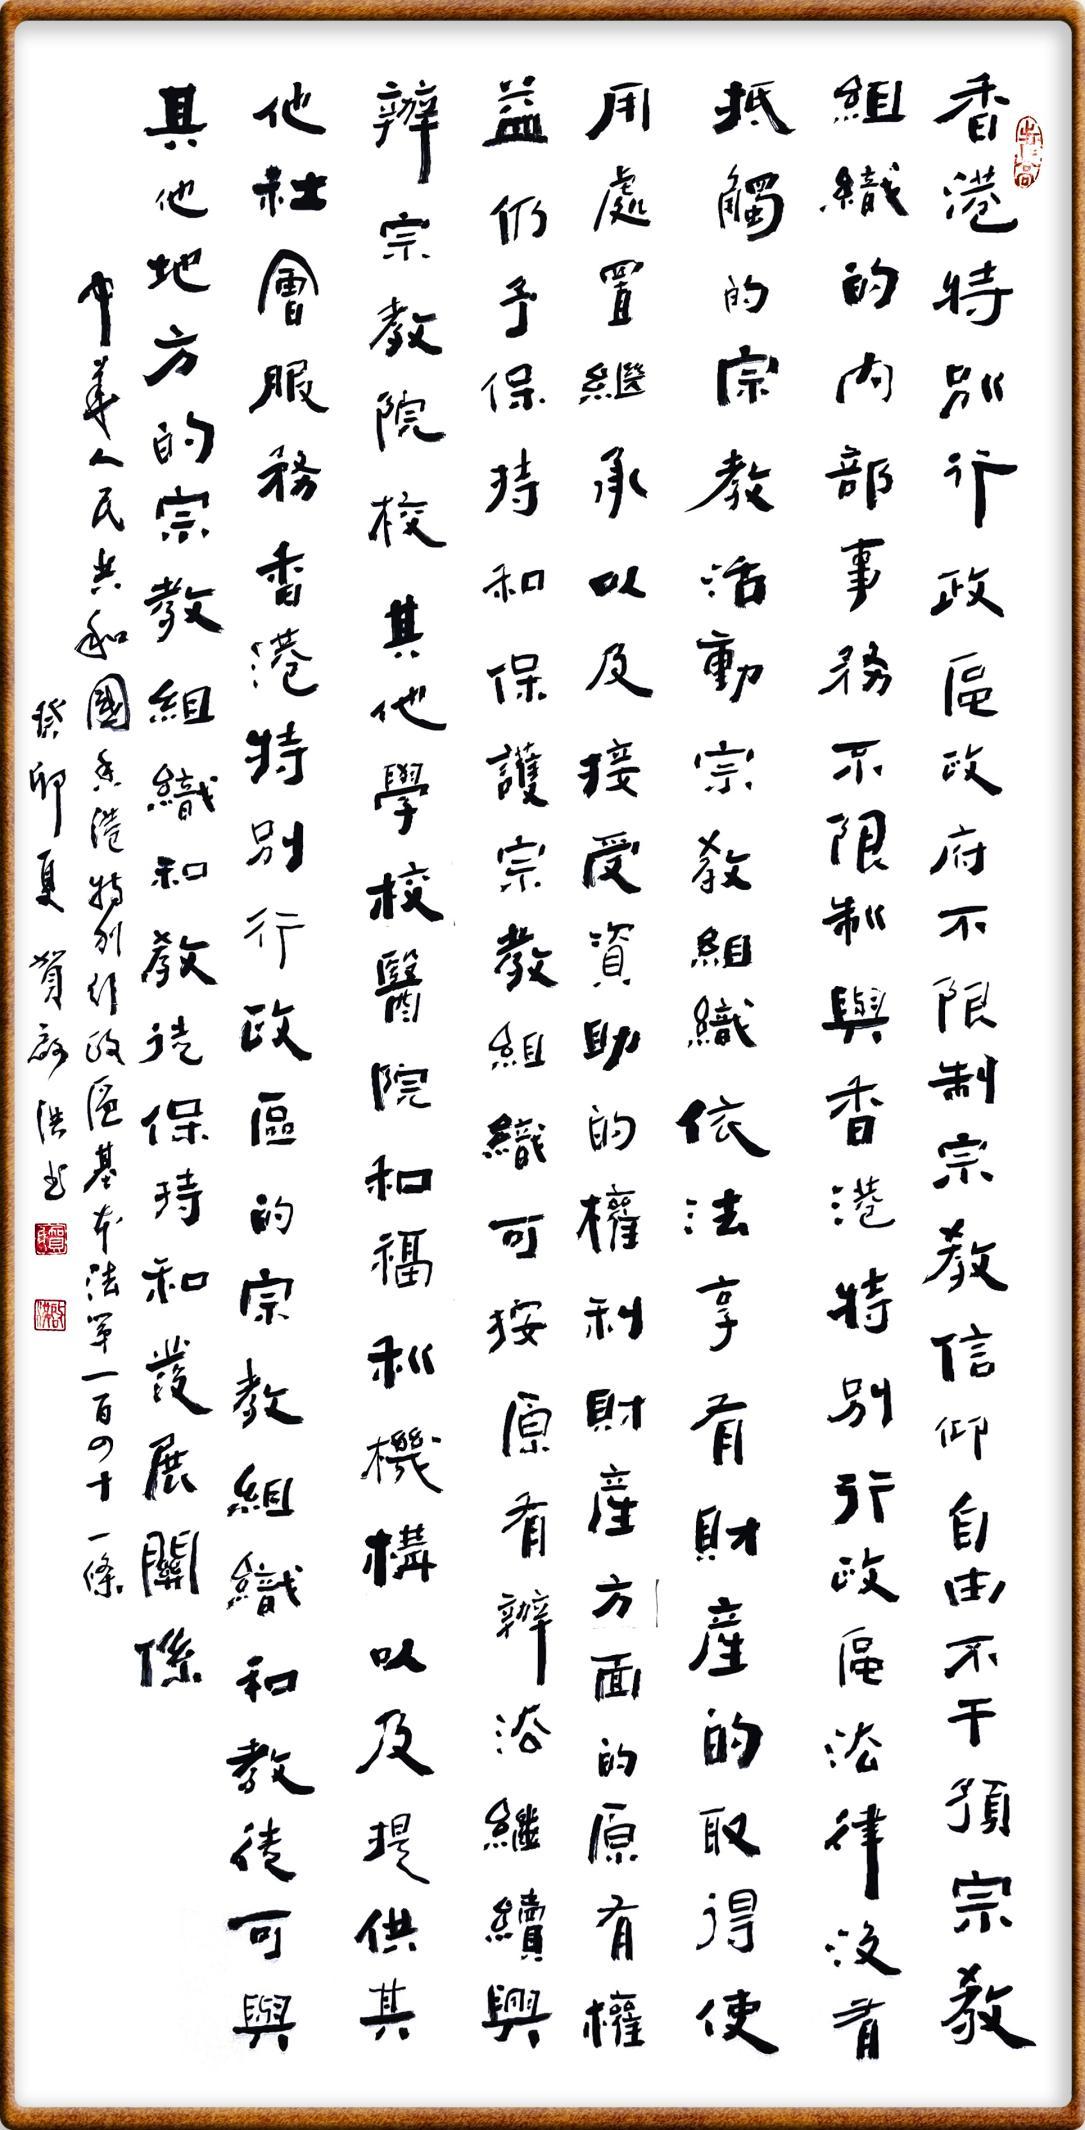 香港特別行政區政府不限制宗教信仰自由不干預宗教
組織的内部事務不限制與香港特别行政區法律没有
抵觸的宗教活動宗教組織依法享有財產的取得使
用處置繼承以及接受資助的權利財產方面的原有權
益仍予保持和保護宗教組織可按原有辦法繼續興
辦宗教院校其他學校醫院和福利機構以及提供其
他社會服務香港特别行政區的宗教組織和教徒可與
其他地方的宗教組織和教徒保持和發展關係
中華人民共和國香港特别行政區基本法第一百四十一條
癸卯夏 賀啟洪书